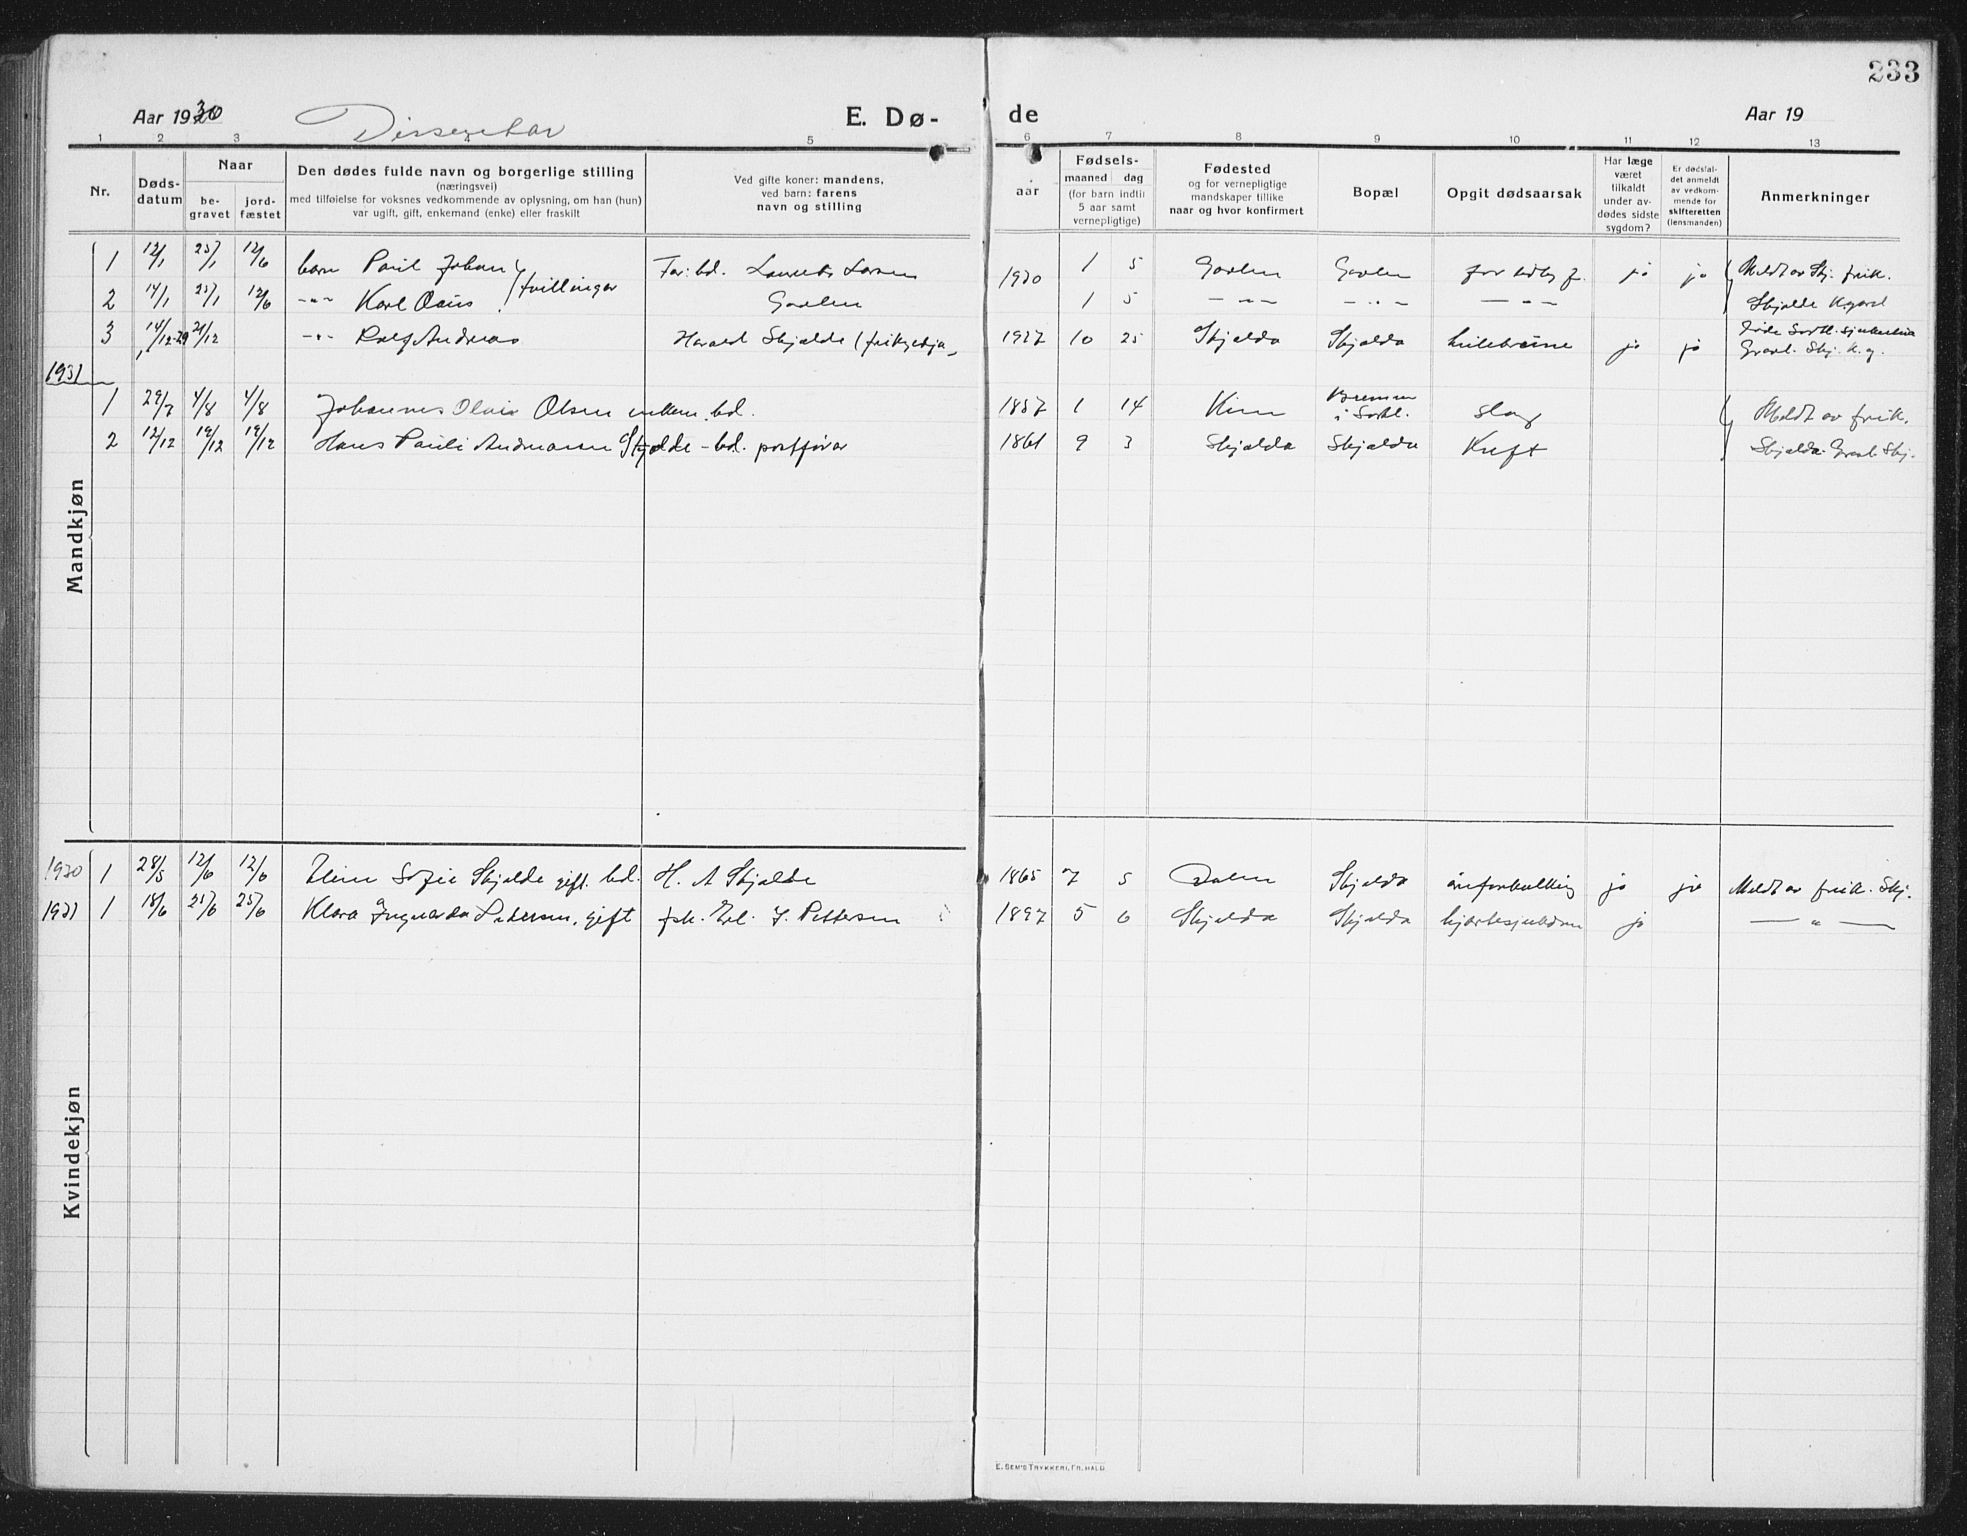 233
Aar 1930 Dissentar E. Dø- de Aar 19
1 2 3 4 5 6 7 8 9 10 11 12 13
Nr.
Døds-
datum
Naar
be-
gravet
jord-
fæstet
Den dødes fulde navn og borgerlige stilling
(næringsvei)
med tilføielse for voksnes vedkommende av oplysning, om han (hun)
var ugift, gift, enkemand (enke) eller fraskilt
Ved gifte koner: mandens,
ved barn: farens
navn og stilling
aar
Fødsels-
maaned dag
(for barn indtil
5 aar samt
vernepligtige)
Fødested
og for vernepligtige
mandskaper tillike
naar og hvor konfirmert
Bopæl
Opgit dødsaarsak
Har læge
været
tilkaldt
under av-
dødes sidste
sygdom?
Er dødsfal-
det anmeldt
av vedkom-
mende for
skifteretten
(lensmanden)
Anmerkninger
Mandkjøn
1 12/1 25/1 12/6 barn Paul Johan Far: bd. Laurits Larsen 1930 1 5 Gavlen Gavlen for tidleg f. ja ja Meldt av Skj. frik.
2 14/1 25/1 12/6 -"- Karl (tvillingar Gavlen 1 5 -"- -"- -"- Skjalde Kgard
3 14/12-29 21/12 -"- Rolf Andreas Harald Skjelde (frikyrkja 1927 10 25 Skjelda Skjelda ja ja
Gravl. Skj. K.g.
1931
1 29/7 4/8 4/8 Johannes Olsen enkem. bd. 1857 1 14 i Sortl. slag Meldt av frik.
2 12/12 19/12 19/12 Hans Pauli Andreassen Skjelde - bd. postførar 1861 9 3 Skjelda Skjelda Kreft Skjelda. Gravl. Skj.
Kvindekjøn
1930 1 28/5 12/6 12/6 Sofie Skjelde gift. bd. H. A Skjelde 1865 7 5 Dalen Skjelda åreforkalking ja ja Meldt av frik. Skj.
1931 1 18/6 25/6 25/6 Klara Ingvarda Pedersen, gift fsk. J. Pettersen 1897 5 6 Skjelda Skjelda hjartesjukdom ja -"-
E. SEM'S TRYKKERI, FR.HALD